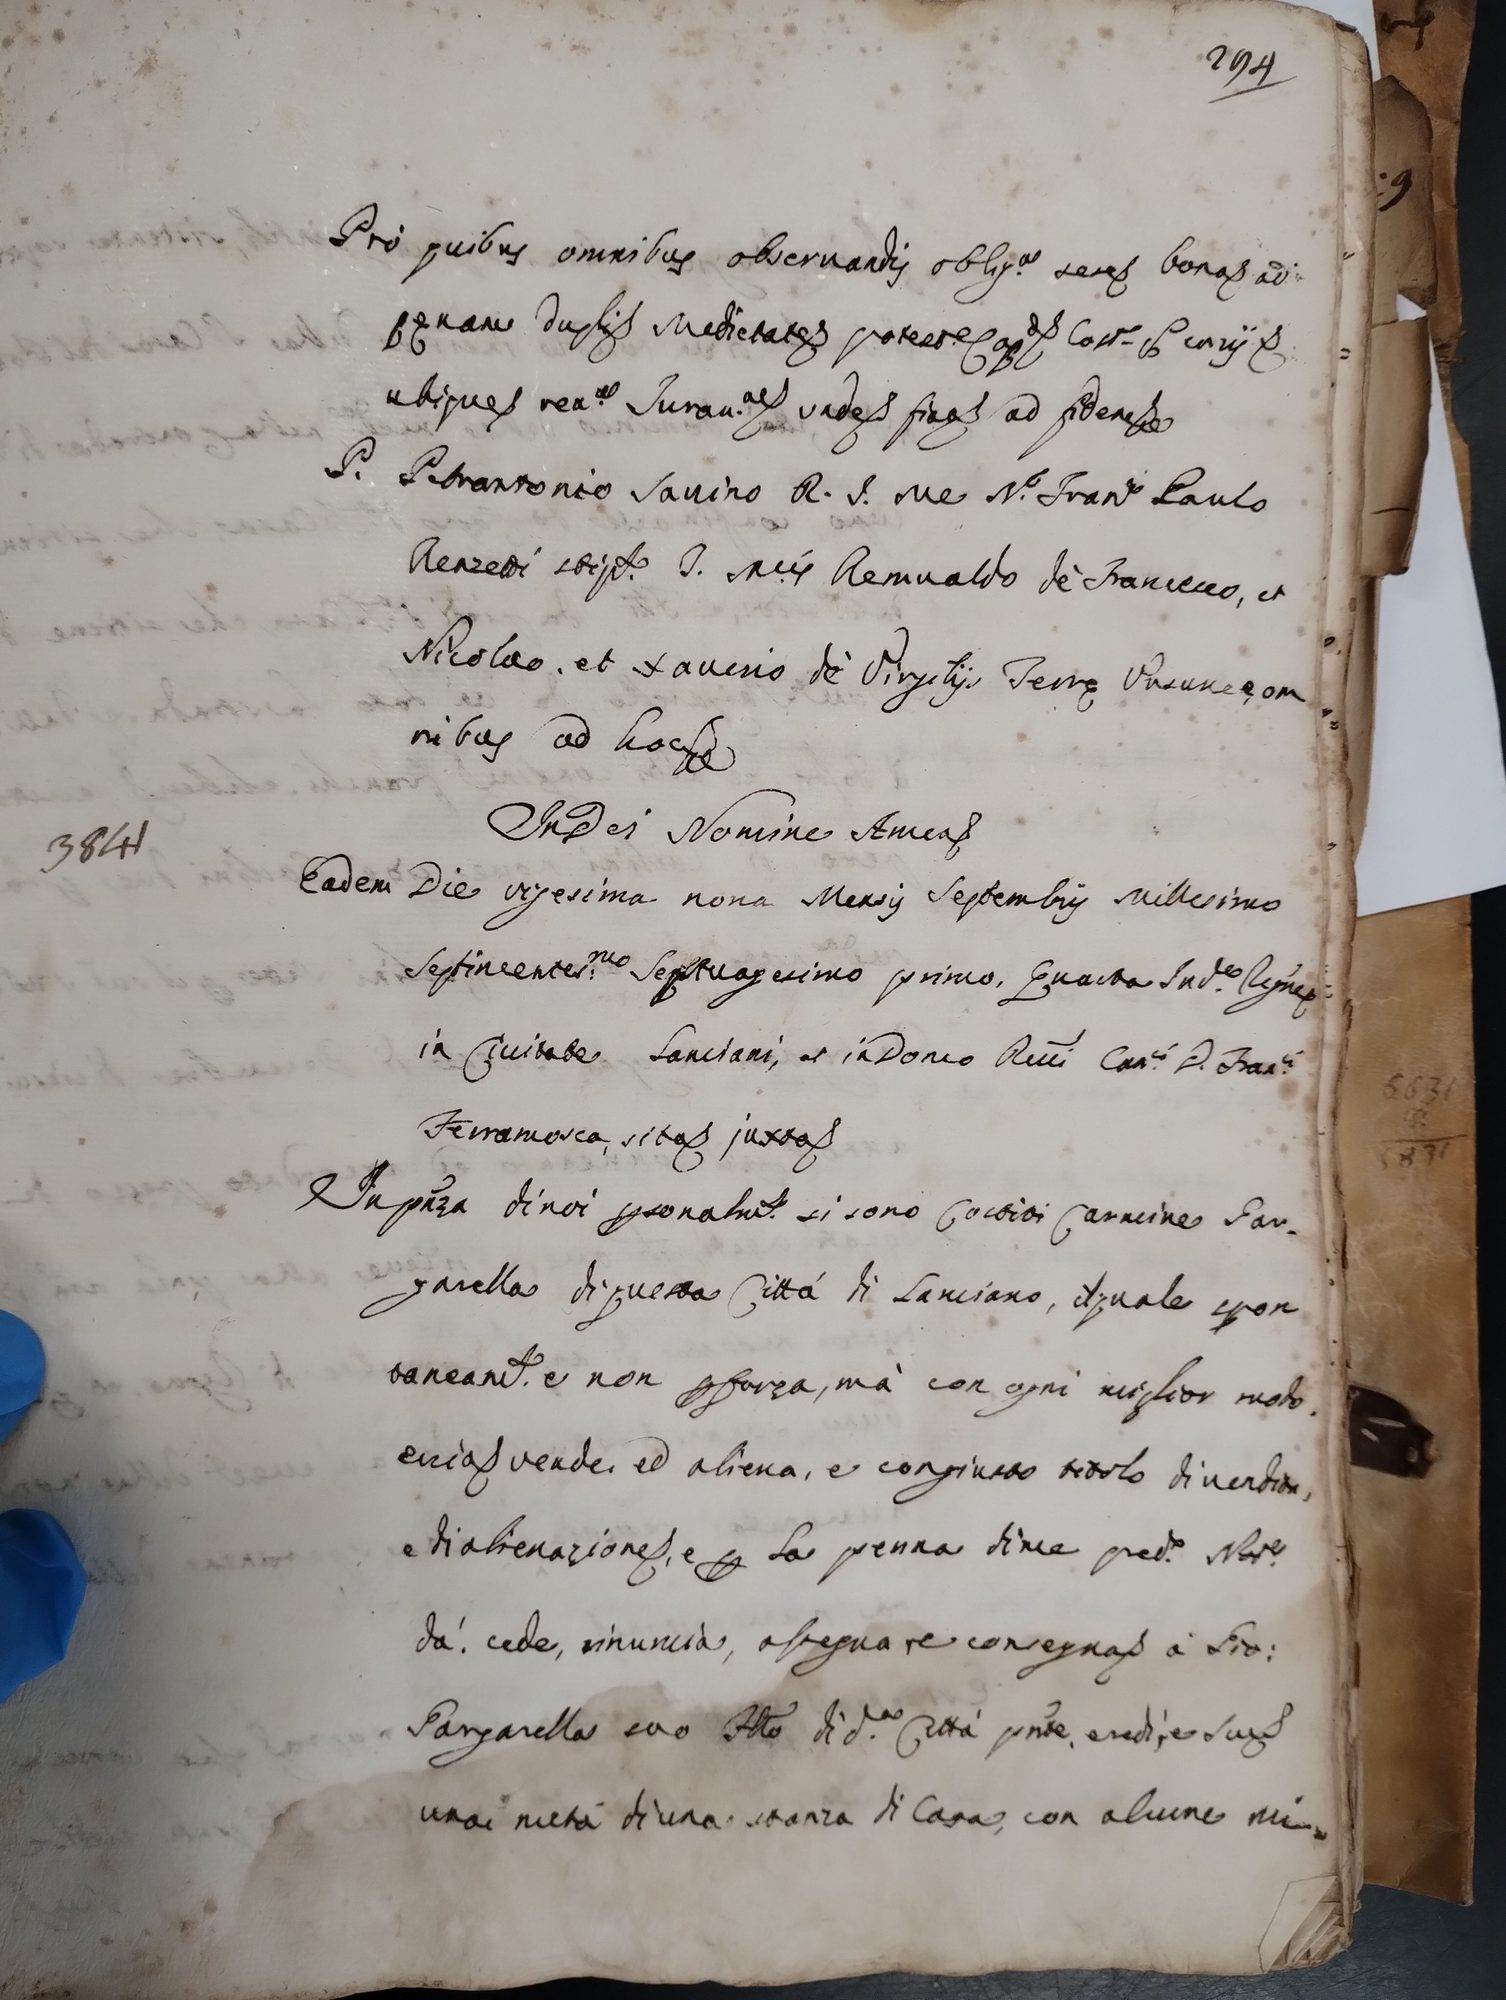 294
Pro quibus omnibus observandis oblig.ao sese bona ad
penam dupli Medietate potest.e Cap.di Const.e Precarij
ubique ren.ao Jurav.ae unde fia ad fidem
P. Petrantonio Savino R. J. me N.o Fran.co Paulo
Renzetti stip.te P. Mcis Remualdo de Francesco, et
Nicolao, et Xaverio de Virgilijs Terre Ursunee, om
nibus ad hoc
In Dei Nomine Amen
384
Eadem Die vigesima nona Mensis Septembris Millesimo
Septincentes.mo Septuagesimo primo, Quarta Ind.e Regne
in Civitate Lanciani, et in Domo Rm̃i Can.ci D. Fran.ci
Ferramosca, sita juxta
In pñza di noi ꝑsonalm.te si sono Costiti Carmine Gar-
garella di questa Città di Lanciano, il quale spon
taneam.te e non ꝑ forza, mà con ogni miglior modo
e via vende, ed aliena, e con giusto titolo di vendita,
e di alienazione, e ꝑ La penna di me pred.o Not.r
dá, cede, rinuncia, assegna, e consegna à Gio:
Gargarella suo Fllo di d.a Città pñte, eredi, e Suc
una metà di una stanza di Casa, con alcune mi-